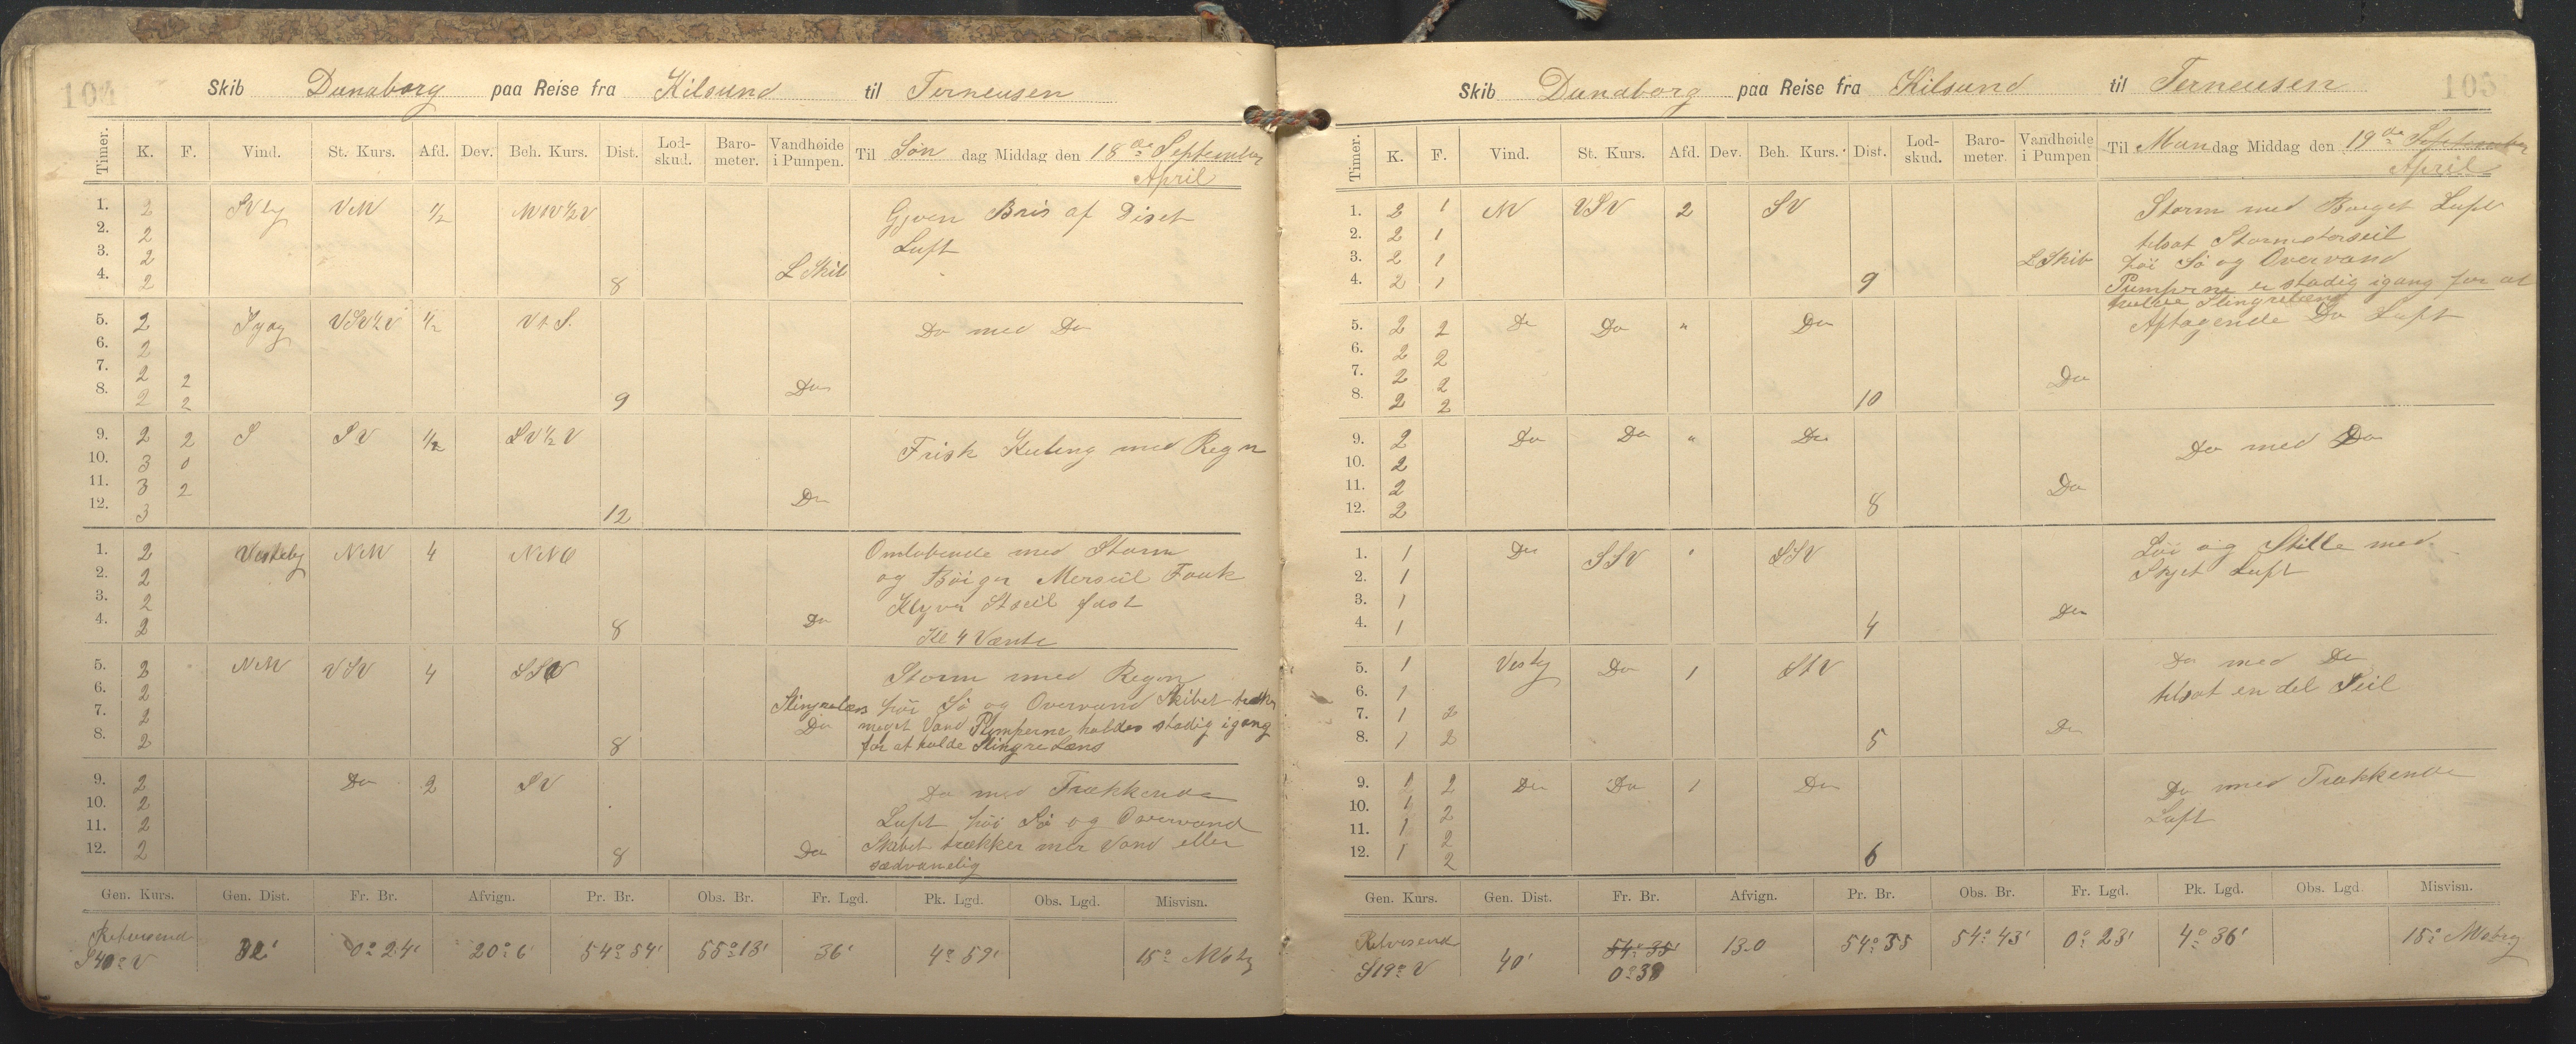 104
Skib Dunaborg paa Reise fra Kilsund til Terneusen
Timer. K. F. Vind. St. Kurs. Afd. Dev. Beh. Kurs. Dist. Lod-skud. Baro-meter. Vandhøide i Pumpen. Til Søn dag Middag den 18de September
April
1. 2 SVly VNV 1/2 NV 1/2 V Gjven Bris af Diset
2. 2 Luft
3. 2 L Skib
4. 2 8
5. 2 Syog VSV 1/2 V 1/2 Vt. S. Do med Do
6. 2
7. 2 2 Do
8. 2 2 9
9. 2 2 S SV 1/2 SV 1/2 V Frisk Kuling med Regn
10. 3 0
11. 3 2 Do
12. 3 12
1. 2 Vestely NNV 4 NNO Omløbende med Storm
2. 2 og Bøiger Merseil Fouk
3. 2 Klyver Stseil fast
4. 2 8 Do Kl 4 Vænte
5. 2 NNV VSV 4 SSV Storm med Regn
6. 2 Slingrelæns høi Sø og Overvand Skibet trækker
7. 2 Do meget Vand Pumperne holdes stadig igang
8. 2 8 for at holde Slingre Læns
9. 2 Do 2 SV Do med Trækkende
10. 2 Luft høi Sø og Overvand
11. 2 Skibet trækker mer Vand eller
12. 2 8 Do sædvanelig
Gen. Kurs. Gen. Dist. Fr. Br. Afvign. Pr. Br. Obs. Br. Fr. Lgd. Pk. Lgd. Obs. Lgd. Misvisn.
Retvisend
S40° V 32' 0° 24' 20° 6 54° 54' 55° 13' 36' 4° 59' 15° NVstg
105
Skib Dunaborg paa Reise fra Kilsund til Terneusen
Timer. K. F. Vind. St. Kurs. Afd. Dev. Beh. Kurs. Dist. Lod-skud. Baro-meter. Vandhøide i Pumpen Til Mandag Middag den 19de September
April
1. 2 1 NV VSV 2 SV Storm med Byget Luft
2. 2 1 tilsat Stormstorseil
3. 2 1 L Skib høi Sø og Overvand
4. 2 1 9 Pumperne er stadig igang for at
holde Slingrelæns
5. 2 2 Do Do " Do Aftagende Do Luft
6. 2 2
7. 2 2 Do
8. 2 2 10
9. 2 Do Do " Do Do med Do
10. 2
11. 2 Do
12. 2 8
1. 1 Do SSV " SSV Løi og Stille med
2. 1 Skyet Luft
3. 1
4. 1 4 Do
5. 1 Vestly Do 1 StV Do med Do
6. 1 tilsat en del Seil
7. 1 2
8. 1 2 5 Do
9. 1 2 Do Do 1 Do Do med Trækkende
10. 1 2 Luft
11. 1 2
12. 1 2 6
Gen. Kurs. Gen. Dist. Fr. Br. Afvign. Pr. Br. Obs. Br. Fr. Lgd. Pk. Lgd. Obs. Lgd. Misvisn.
Retvisend 54° 35' 13.0 54° 35 54° 43' 0° 23' 4° 36' 15° NVstg
S19° V 40' 0° 39